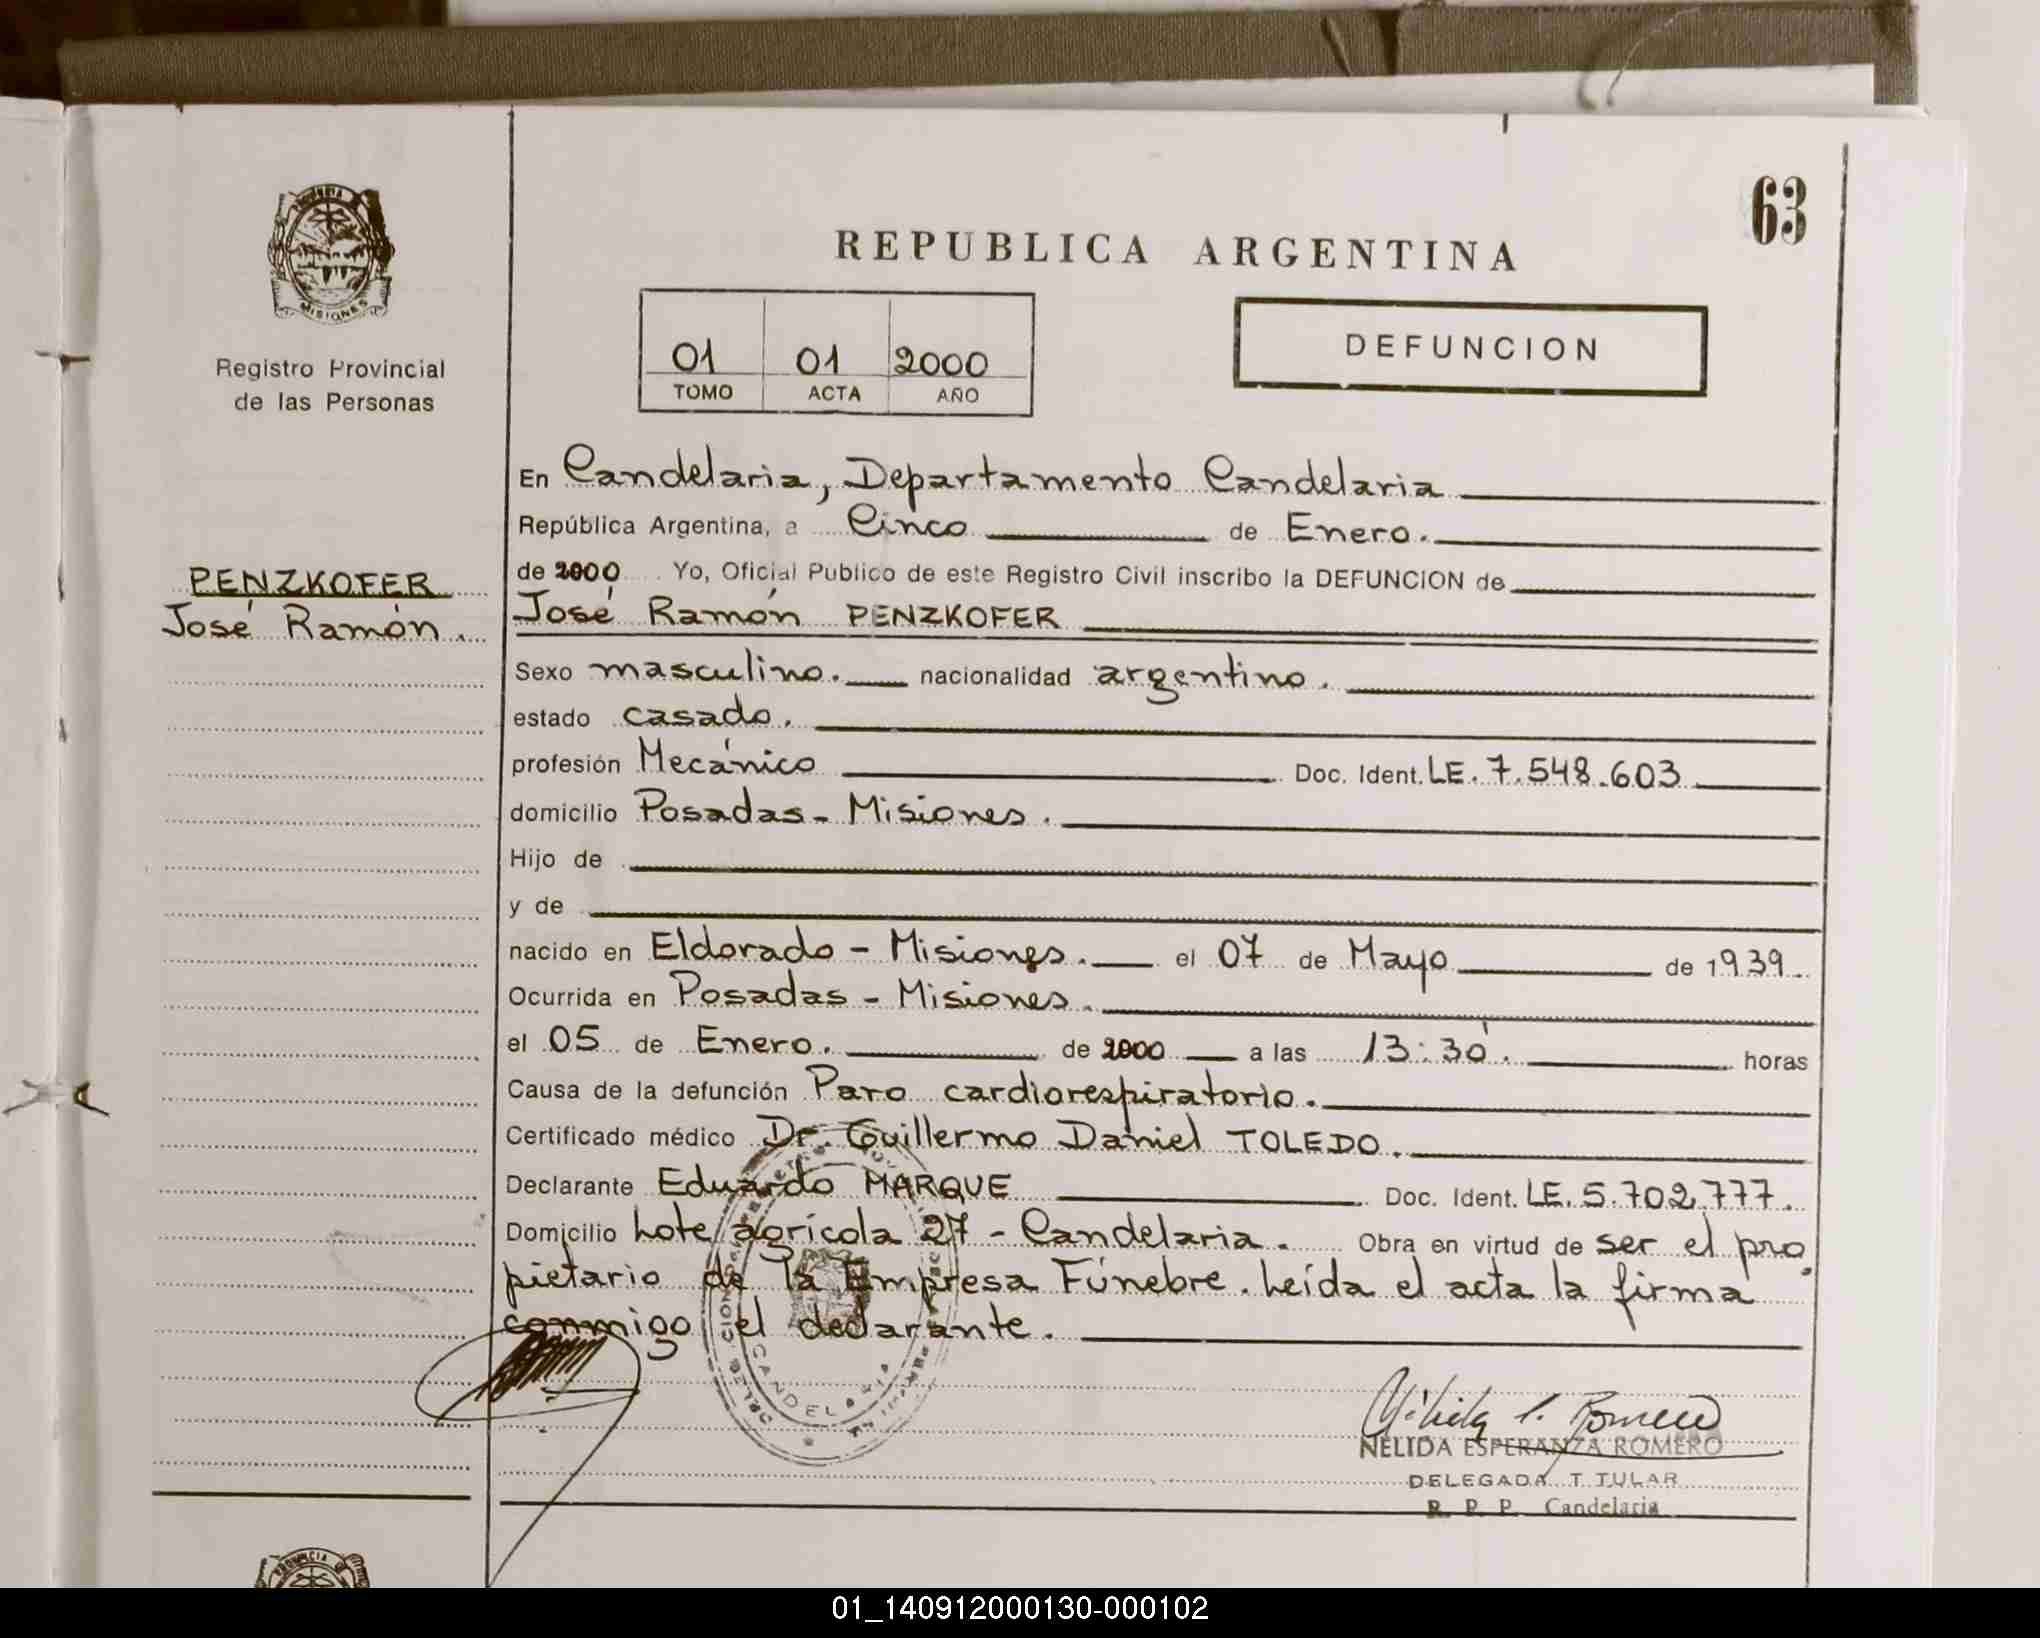 63
PROVINCIA DE
MISIONES
Registro Provincial
de las Personas
REPUBLICA ARGENTINA
01 01 2000
TOMO ACTA AÑO
DEFUNCION
PENZKOFER
José Ramón.
En Candelaria, Departamento Candelaria
República Argentina, a Cinco de Enero.
de 2000 Yo, Oficial Publico de este Registro Civil inscribo la DEFUNCION de
José Ramón PENZKOFER
Sexo masculino. nacionalidad argentino.
estado casado.
profesión Mecánico Doc. Ident. LE. 7.548.603
domicilio Posadas - Misiones.
Hijo de
y de
nacido en Eldorado - Misiones. el 07 de Mayo de 1939
Ocurrida en Posadas - Misiones.
el 05 de Enero. de 2000 a las 13:30'. horas
Causa de la defunción Paro cardiorespiratorio.
Certificado médico Dr. Guillermo Daniel TOLEDO.
Declarante Eduardo MARQUE Doc. Ident. LE. 5.702.777.
Domicilio Lote agrícola 27 - Candelaria. Obra en virtud de ser el pro
pietario de la Empresa Fúnebre. Leída el acta la firma
conmigo el declarante.
CANDELARIA
NELIDA ESPERANZA ROMERO
DELEGADA TITULAR
R. P. P. Candelaria
PROVINCIA DE
01_140912000130-000102